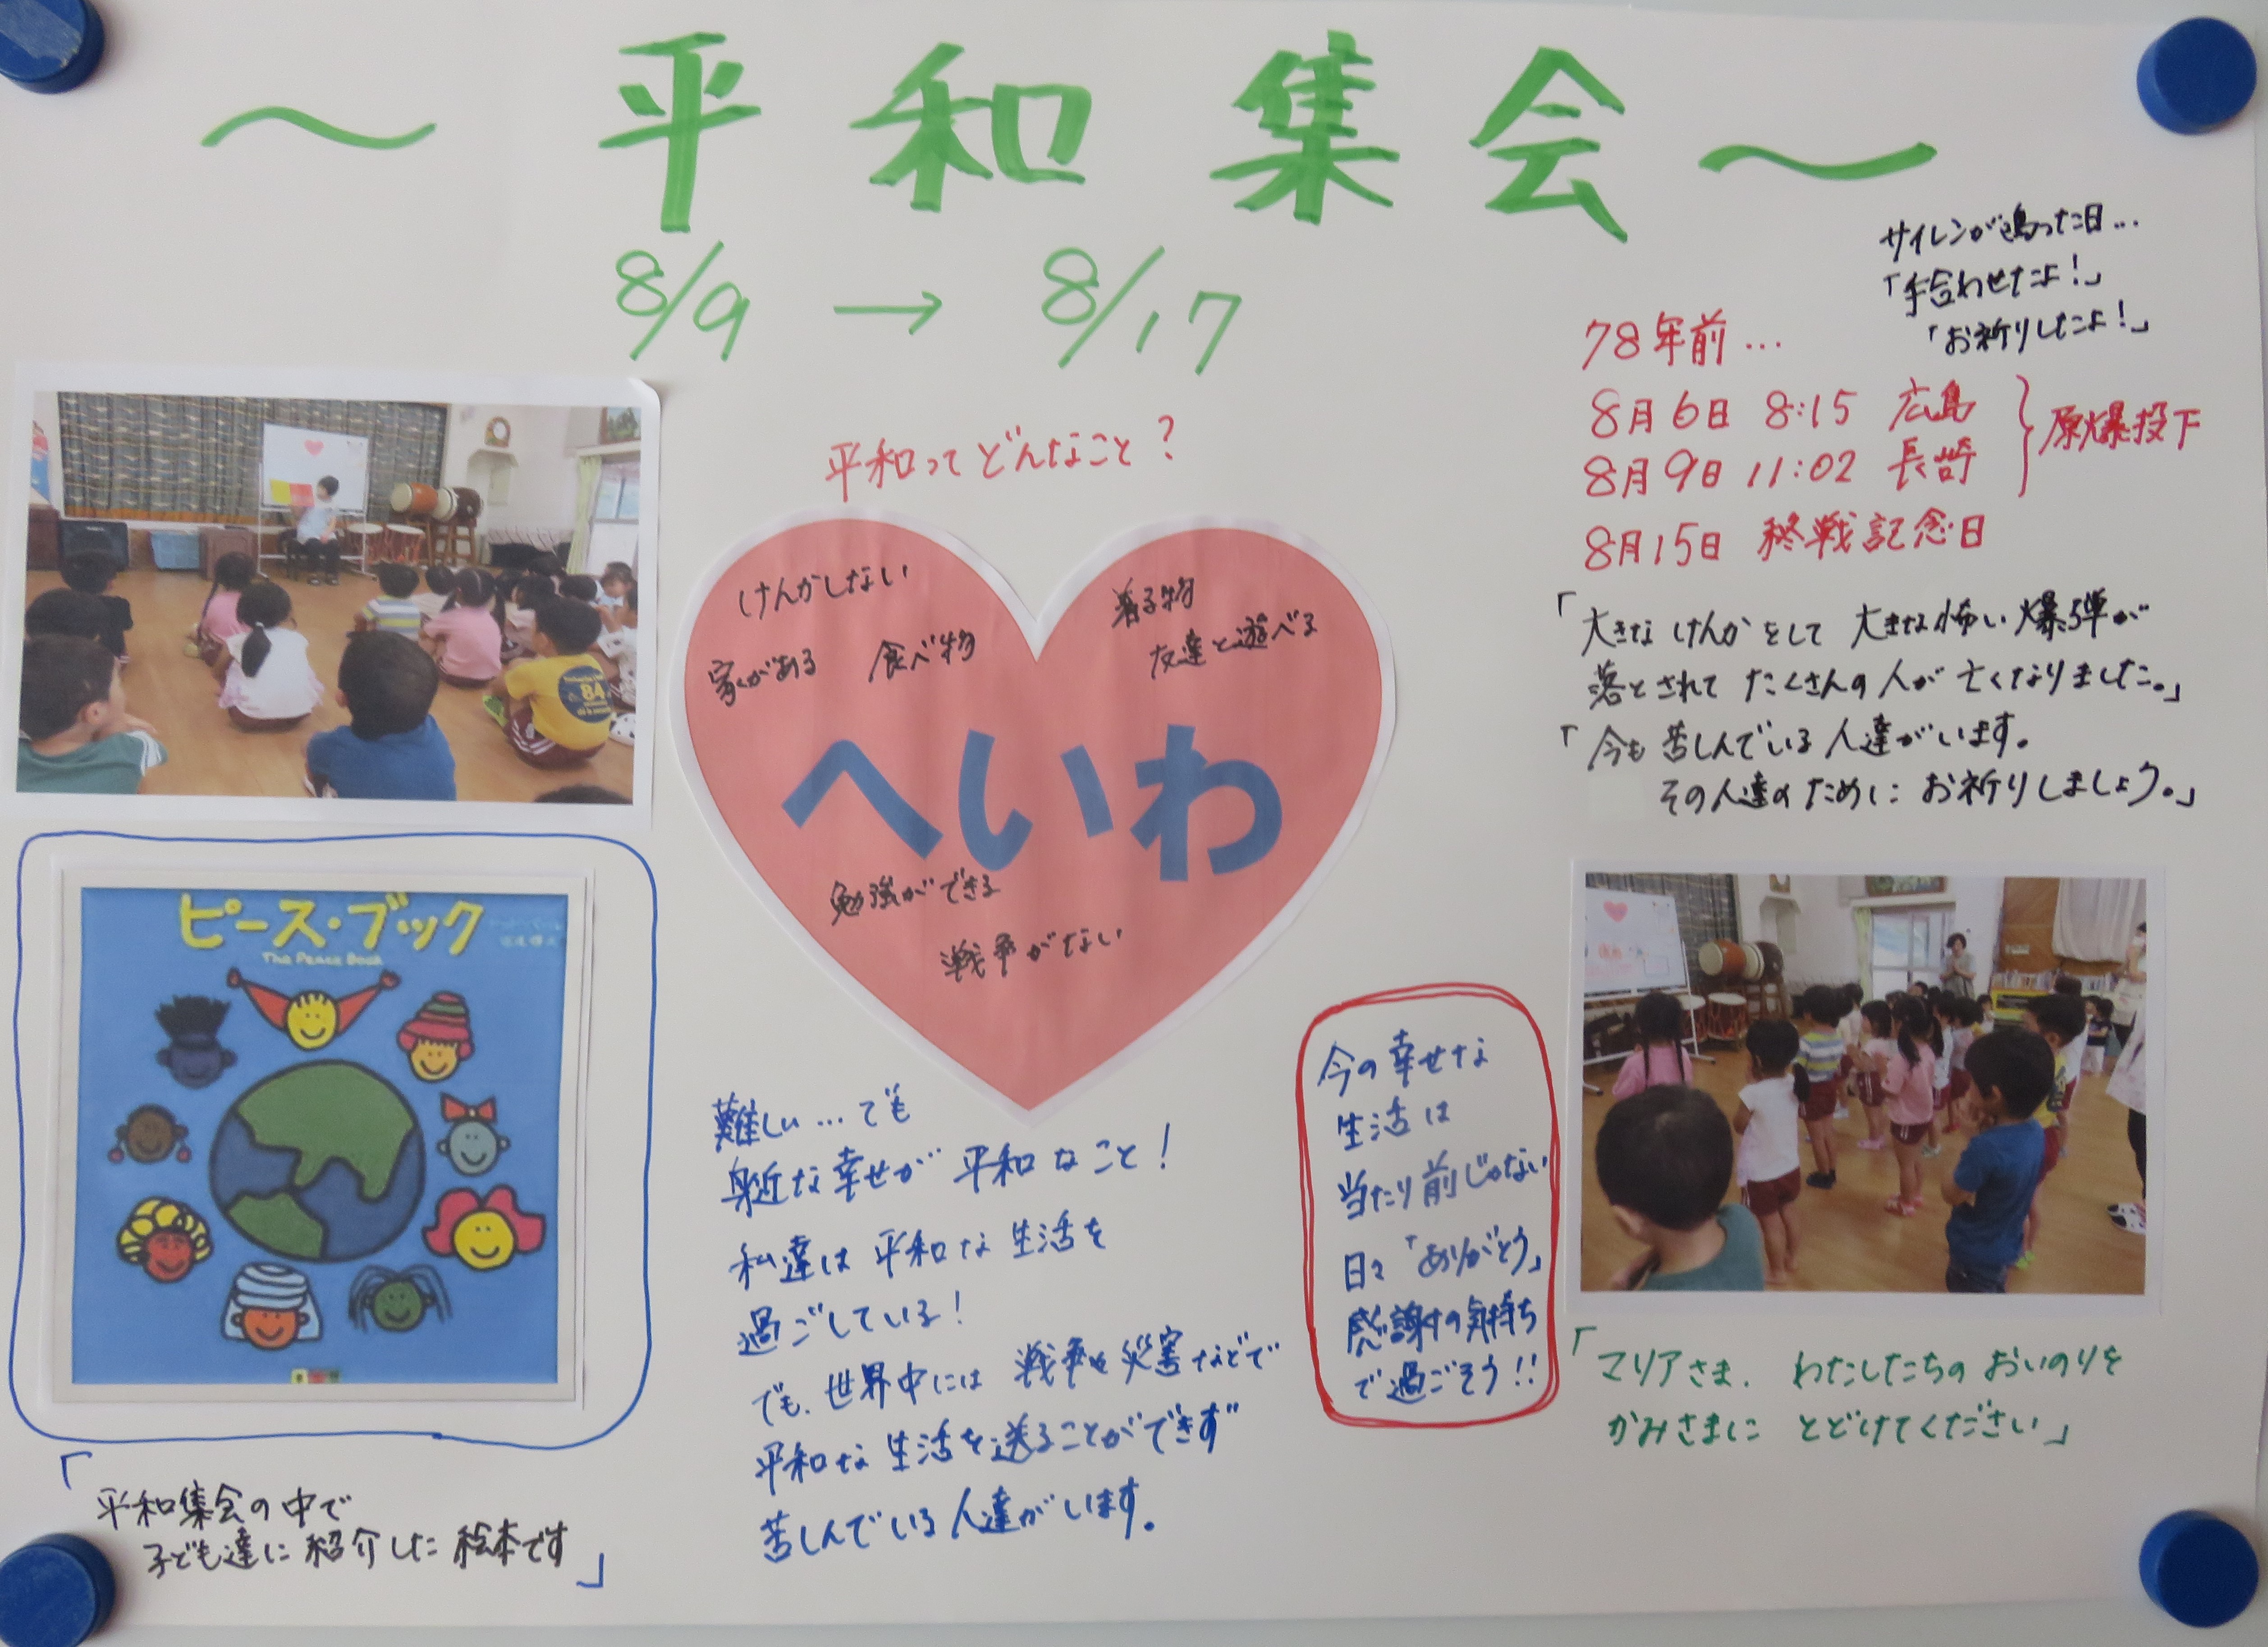 ～平和集会～
8/9 → 8/17
サイレンが鳴った日…
「手合わせたよ！」
「お祈りしたよ！」
78年前…
8月6日 8:15 広島
8月9日 11:02 長崎
原爆投下
8月15日 終戦記念日
「大きなけんかをして 大きな怖い爆弾が
落とされて たくさんの人が亡くなりました。」
「今も苦しんでいる人達がいます。
その人達のために お祈りしましょう。」
平和ってどんなこと？
けんかしない
着る物
家がある
食べ物
友達と遊べる
へいわ
勉強ができる
戦争がない
ピース・ブック
The Peace Book
84
「平和集会の中で
子ども達に紹介した絵本です」
難しい…でも
身近な幸せが 平和なこと！
私達は 平和な生活を
過ごしている！
でも、世界中には 戦争や災害などで
平和な生活を送ることができず
苦しんでいる人達がいます。
今の幸せな
生活は
当たり前じゃない
日々「ありがとう」
感謝の気持ち
で過ごそう!!
「マリアさま、わたしたちのおいのりを
かみさまに とどけてください」